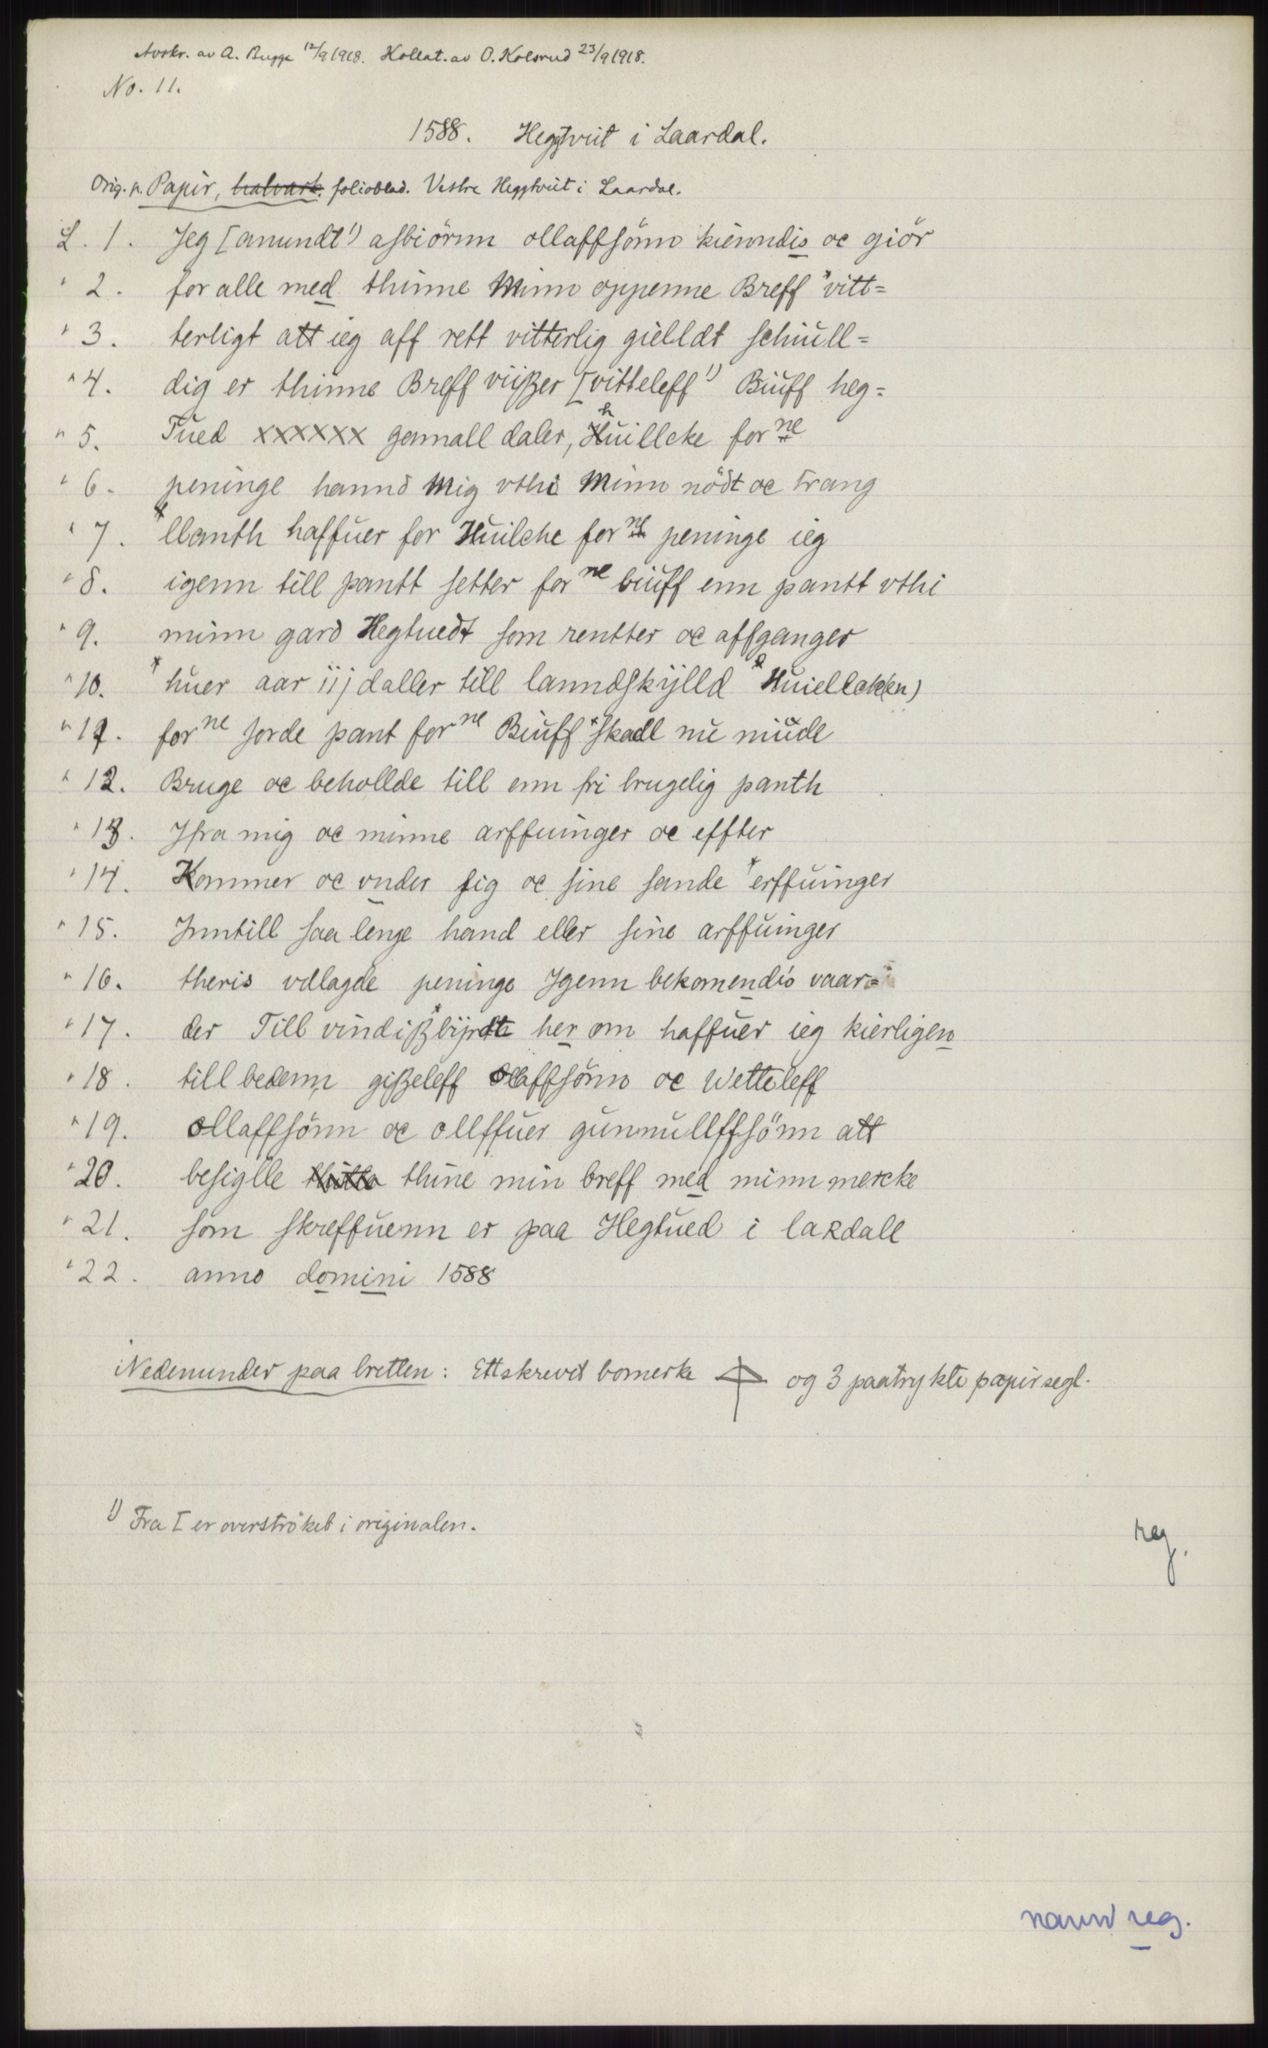 Avskr. av A. Bugge 12/9 1918. Kollat. av O. Kolsrud 23/9 1918.
No. 11.
1588. Heggtvut i Laardal.
Orig. p. Papir, halvark. folioblad. Vestre Heggtveit i Laardal.
L. 1. Jeg [amundt 1) asbiörnn ollaffsönn kienndis oc giör
" 2. for alle med thinne Minn oppenne Breff *vitt=
" 3. terligt att ieg aff rett vitterlig gielldt schiull=
" 4. dig er thinne Breff viißer [vitteleff 1) Biuff heg=
" 5. Tued xxxxxx gamall daler, Huillcke for ne
" 6. peninge hannd Mig vthi Minn nödt oc trang
" 7. *llanth haffuer for Huilche for ne peninge ieg
" 8. igenn till pantt setter for ne biuff enn pantt vthi
" 9. minn gard Hegtuedt som rentter oc affganger
" 10. *huer aar iij daller till lanndskylld *Huiellck(en)
" 11. for ne Jorde pant for ne Biuff *skall nu niude
" 12. Bruge oc behollde till enn fri brugelig panth
" 13. Jfra mig oc minne arffuinger oc effter
" 14. Kommer oc vnder sig oc sine sande *erffuinger
" 15. Jnntill saa lenge hand eller sine arffuinger
" 16. theris vdlagde peninge Jgenn bekomendis vaar=
" 17. der Till vindiß*byrdt her om haffuer ieg kierligen
" 18. till bedenn gißeleff ollaffsönn oc Wetteleff
" 19. ollaffsönn oc ollffuer gunnullffsönn att
" 20. besiglle thitte thine min breff med minn mercke
" 21. som skreffuenn er paa Hegtued i laRdall
" 22. anno domini 1588
Nedenunder paa bretten: Ett skrevet bomerke og 3 paatrykte papirsegl.
1) Fra [ er overströket i originalen.
reg.
navnreg.